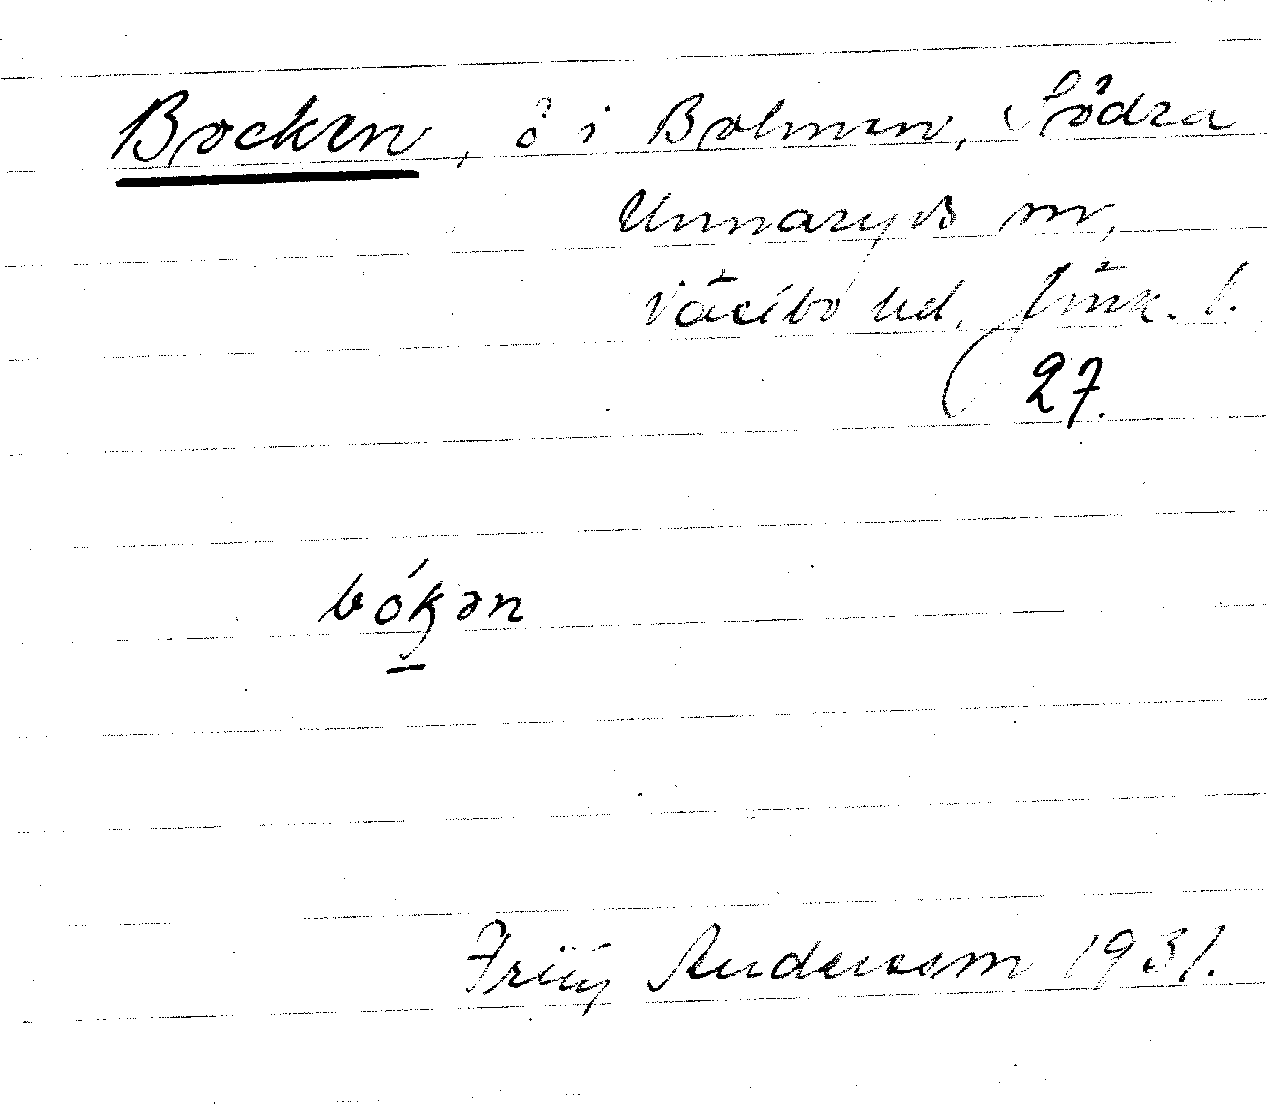 Bocken, ö i Bolmen, Södra
Unnaryds sn,
Västbo hd, Jönk. l.
27.
bókən
Andersson 1931.